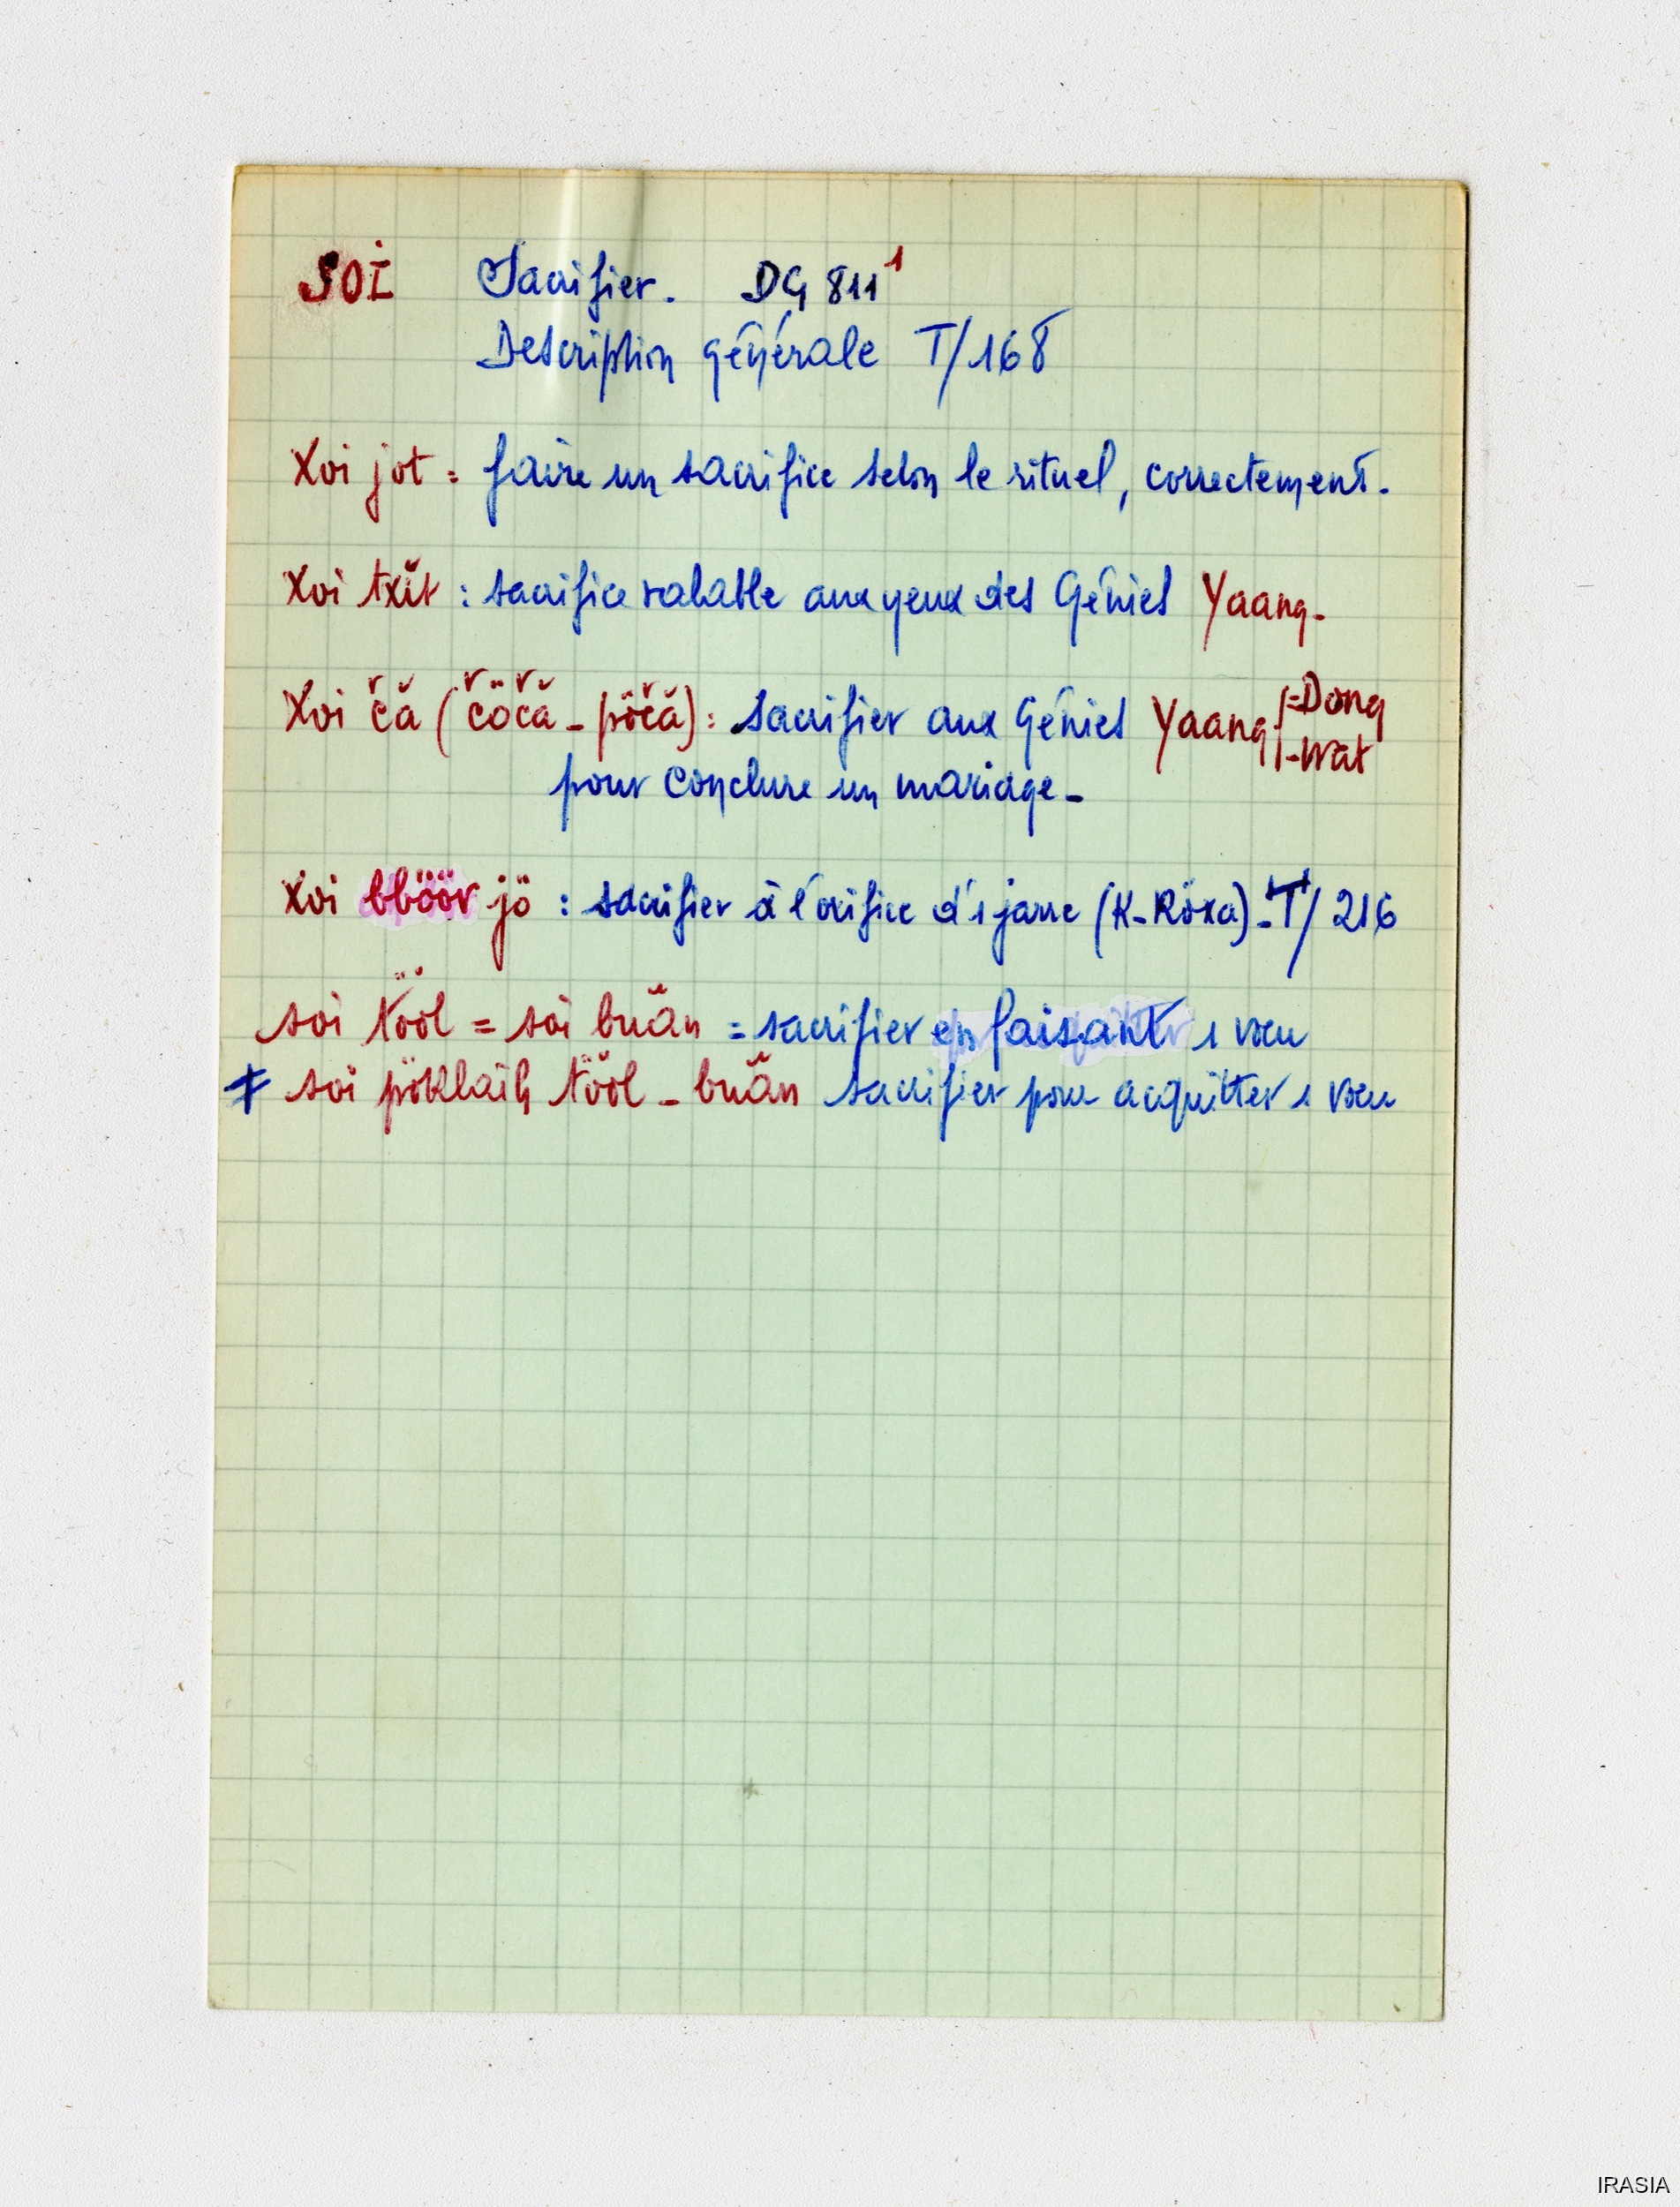 SOI Sacrifier. DG 811¹
Description générale T/168
Xoi jot : faire un sacrifice selon le rituel, correctement.
Xoi txăt : sacrifice valable aux yeux des Génies Yaang.
Xoi čă (čöčă - pöčă) : sacrifier aux Génies Yaang { -Dong
-Wat
pour conclure un mariage.
Xoi bböör jö : sacrifier à l'orifice d'1 jarre (K-Röxa). T/216
soi tööl = soi buăn = sacrifier en faisant 1 vœu
≠ soi pöklaih tööl - buăn sacrifier pour acquitter 1 vœu
IRASIA